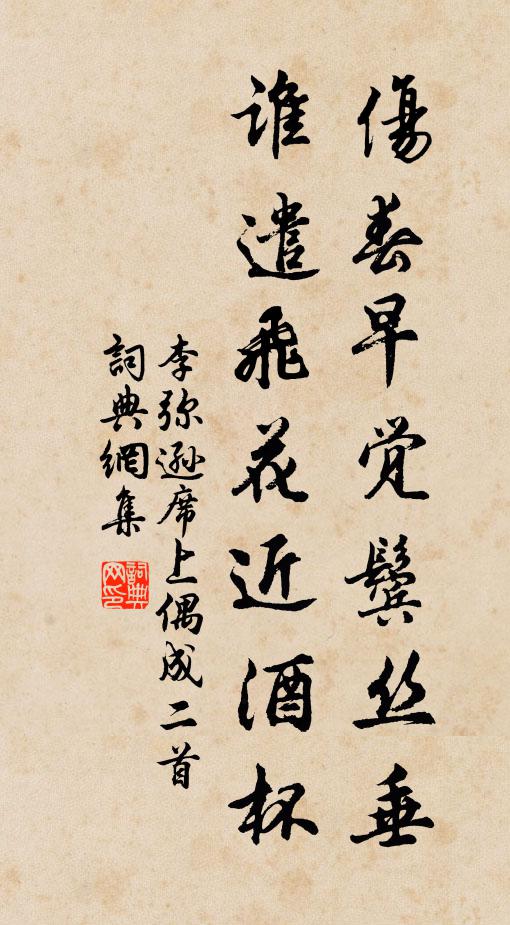 傷春早觉鬓丝垂
谁遣飛花近酒杯
李弥逊席上偶成二首
詞典網集
詞典
网印